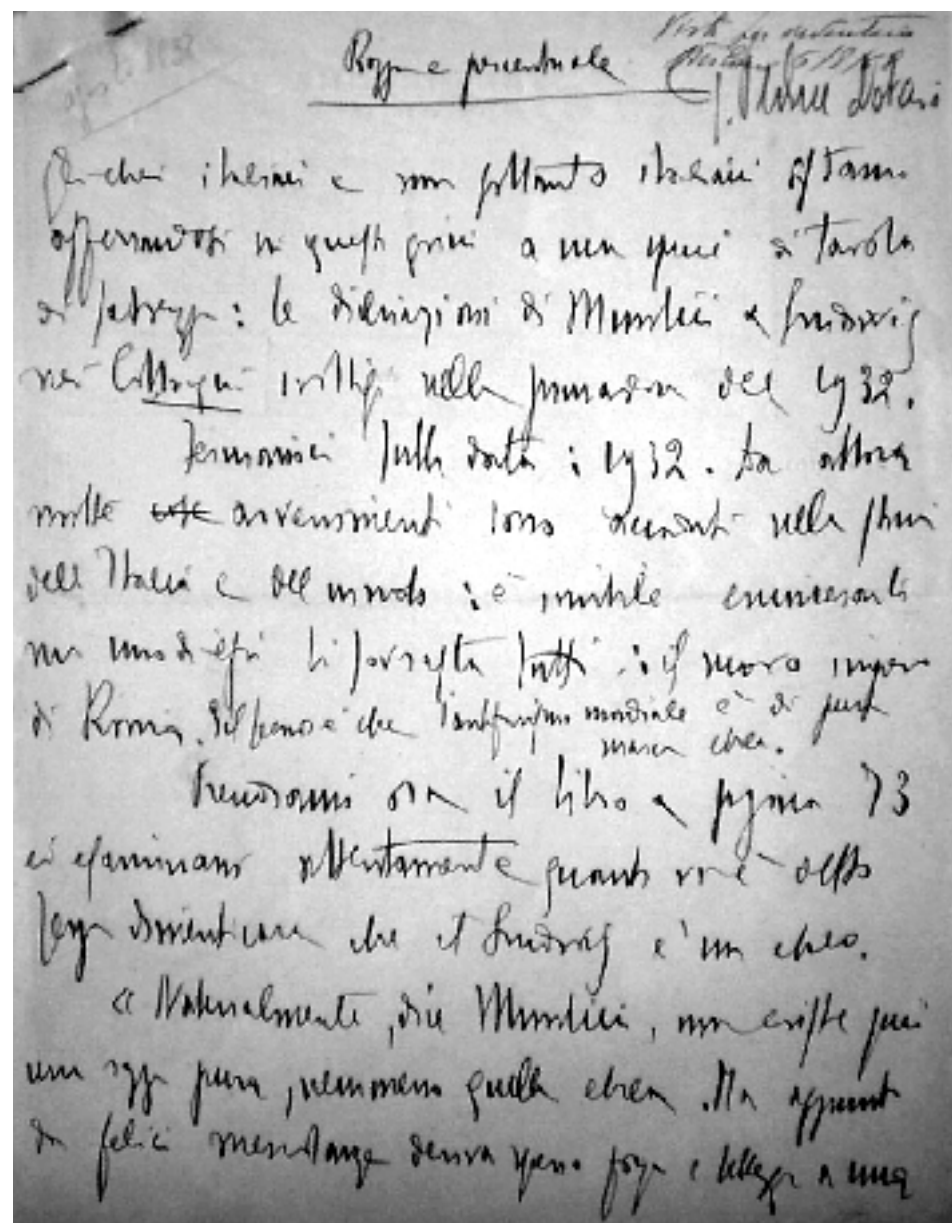 Razza e percentuale
Gli ebrei italiani e non soltanto italiani si stanno
afferrandosi in questi giorni a una specie di tavola
di salvezza: le dichiarazioni di Mussolini a Ludwig
nei Colloqui svoltisi nella primavera del 1932.
Fermiamoci sulla data: 1932. Da allora
molte avvenimenti sono accaduti nella storia
dell'Italia e del mondo: è inutile enumerarli
ma uno di essi li sovrasta tutti: il nuovo impero
di Roma. che l'antifascismo mondiale è di pura
marca ebrea.
Prendiamo ora il libro a pagina 73
ed esaminiamo attentamente quanto vi è detto
senza dimenticare che il Ludwig è un ebreo.
« Naturalmente, dice Mussolini, non esiste più
una razza pura, nemmeno quella ebrea. Ma appunto
da felici mescolanze deriva spesso forza e bellezza a una